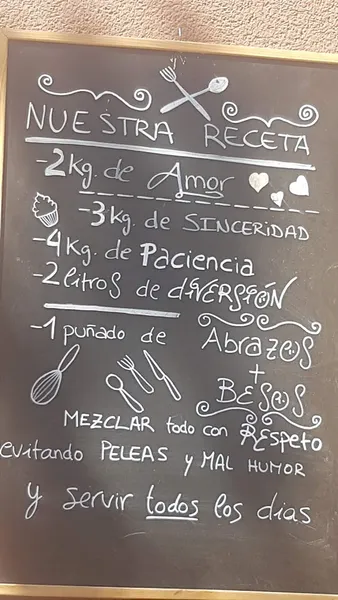 NUESTRA RECETA
-2Kg. de Amor
-3kg. de SINCERIDAD
-4Kg. de Paciencia
-2 litros de diVERSIÓN
-1 puñado de Abrazos
+
BESOS
MEZCLAR todo con REspeto
evitando PELEAS y MAL HUMOR
y servir todos los dias